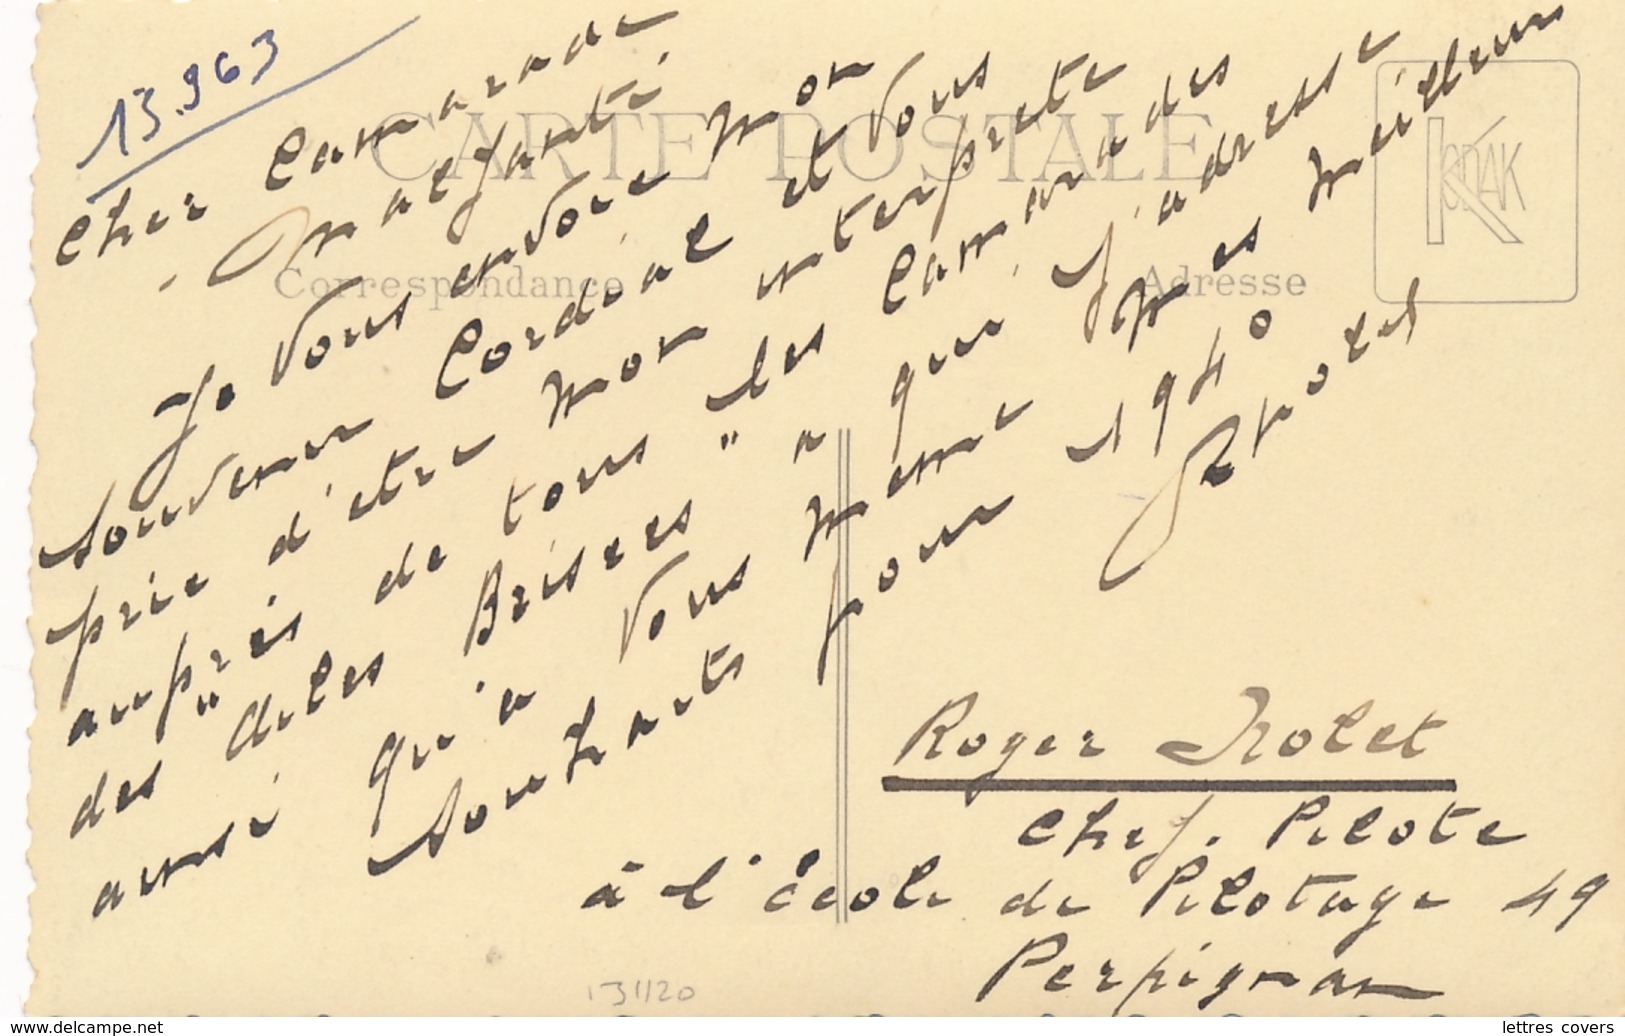 13.963
CARTE POSTALE
Correspondance
Adresse
KODAK
Cher Camarade
Malfanti.
Je vous envoie mon
souvenir Cordial et vous
prie d'être mon interprète
auprès de tous les Camarades
des "Ailes Brisées" à qui j'adresse
ainsi qu'à vous même mes meilleurs
souhaits pour 1940
Roger Nolet
Chef. Pilote
à l'école de Pilotage 49
Perpignan
131120
www.delcampe.net
lettres covers